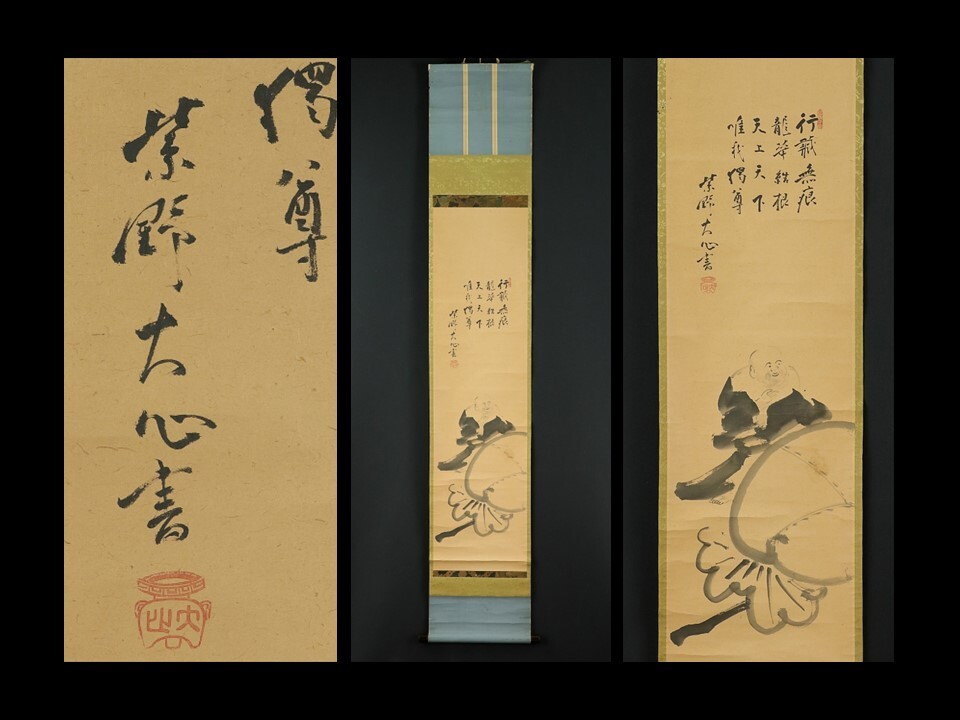 獨尊
紫野大心書
行藏無痕
龍華根
天上天下
唯我獨尊
紫野大心書
行藏無痕
龍華根
天上天下
唯我獨尊
紫野大心書